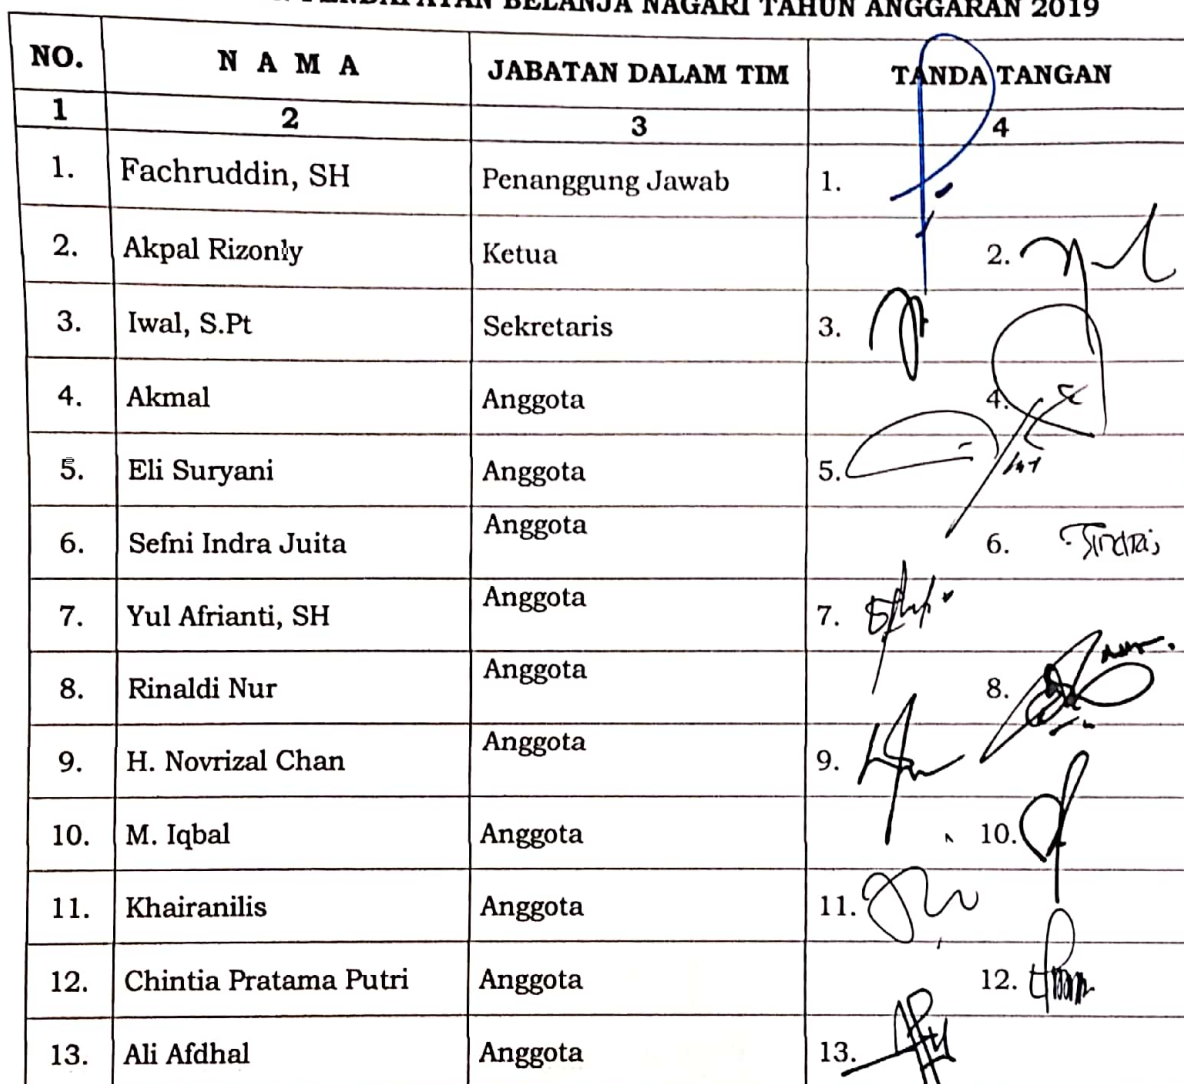 PENDAPATAN BELANJA NAGARI TAHUN ANGGARAN 2019
NO. N A M A JABATAN DALAM TIM TANDA TANGAN
1 2 3 4
1. Fachruddin, SH Penanggung Jawab 1.
2. Akpal Rizonly Ketua 2.
3. Iwal, S.Pt Sekretaris 3.
4. Akmal Anggota 4.
5. Eli Suryani Anggota 5.
6. Sefni Indra Juita Anggota 6.
7. Yul Afrianti, SH Anggota 7.
8. Rinaldi Nur Anggota 8.
9. H. Novrizal Chan Anggota 9.
10. M. Iqbal Anggota 10.
11. Khairanilis Anggota 11.
12. Chintia Pratama Putri Anggota 12.
13. Ali Afdhal Anggota 13.